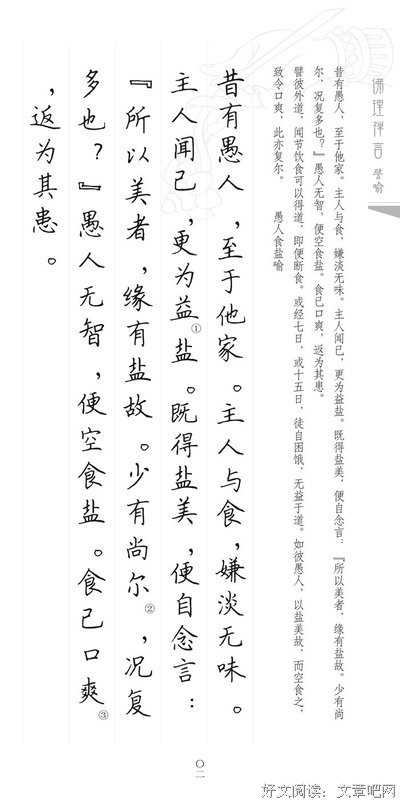 佛理禅言 譬喻
昔有愚人，至于他家。主人与食，嫌淡无味。主人闻已，更为益盐。既得盐美，便自念言：『所以美者，缘有盐故。少有尚
尔，况复多也？』愚人无智，便空食盐。食已口爽，返为其患。
譬彼外道，闻节饮食可以得道，即便断食。或经七日，或十五日，徒自困饿，无益于道。如彼愚人，以盐美故，而空食之，
致令口爽，此亦复尔。 愚人食盐喻
昔有愚人，至于他家。主人与食，嫌淡无味。
主人闻已，更为益①盐。既得盐美，便自念言：
『所以美者，缘有盐故。少有尚尔②，况复
多也？』愚人无智，便空食盐。食已口爽③
，返为其患。
〇二
好文阅读：文章吧网